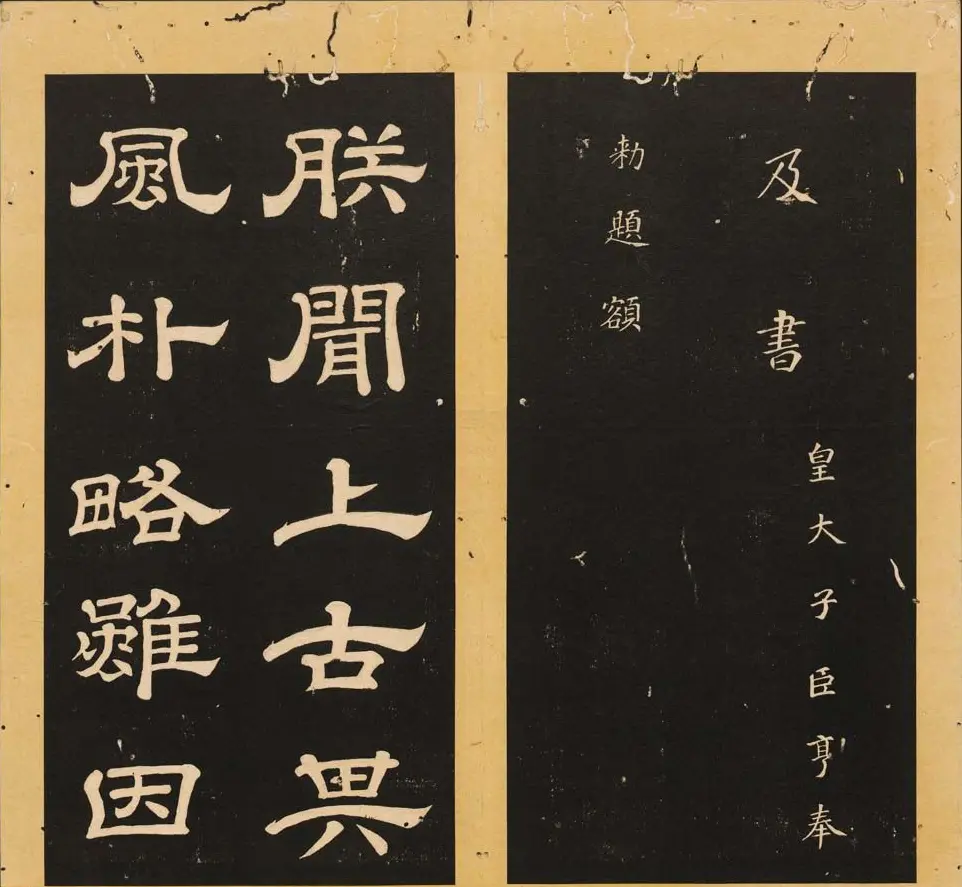 及書
皇大子臣亨奉
勑題額
朕聞上古其
風朴略雖因